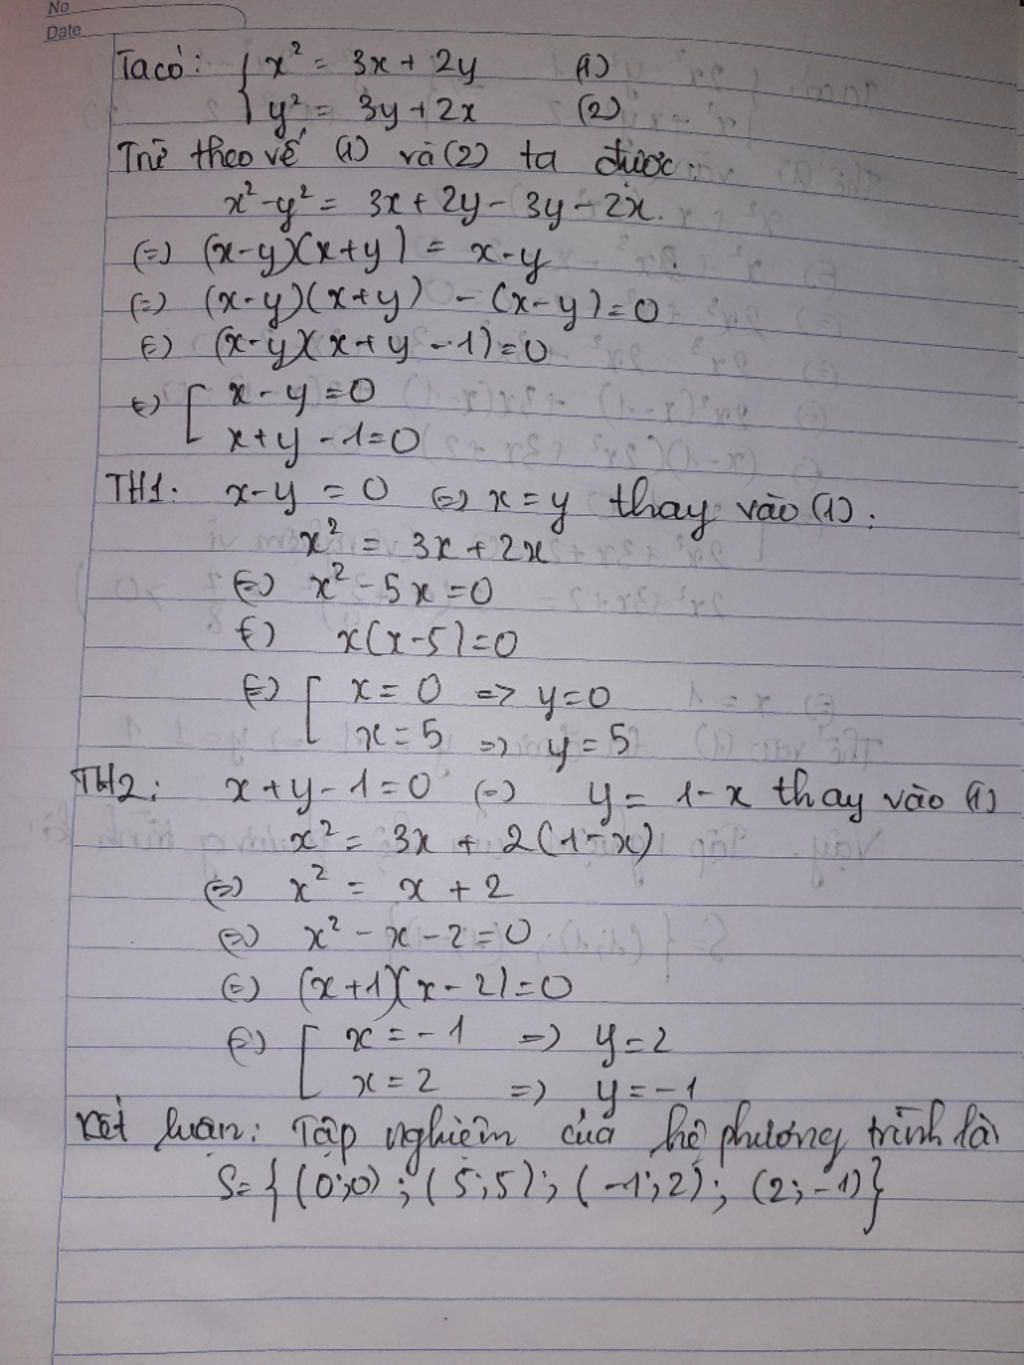 No
Date
Ta có: { x² = 3x + 2y (1)
y² = 3y + 2x (2)
Trừ theo vế (1) và (2) ta được:
x² - y² = 3x + 2y - 3y - 2x.
(=) (x-y)(x+y) = x-y
(=) (x-y)(x+y) - (x-y) = 0
(=) (x-y)(x+y-1) = 0
(=) [ x - y = 0
x + y - 1 = 0
TH1: x - y = 0 (=) x = y thay vào (1):
x² = 3x + 2x
(=) x² - 5x = 0
(=) x(x-5) = 0
(=) [ x = 0 => y = 0
x = 5 => y = 5
TH2: x + y - 1 = 0 (=) y = 1 - x thay vào (1)
x² = 3x + 2(1-x)
(=) x² = x + 2
(=) x² - x - 2 = 0
(=) (x+1)(x-2) = 0
(=) [ x = -1 => y = 2
x = 2 => y = -1
Kết luận: Tập nghiệm của hệ phương trình là
S = {(0;0); (5;5); (-1;2); (2;-1)}